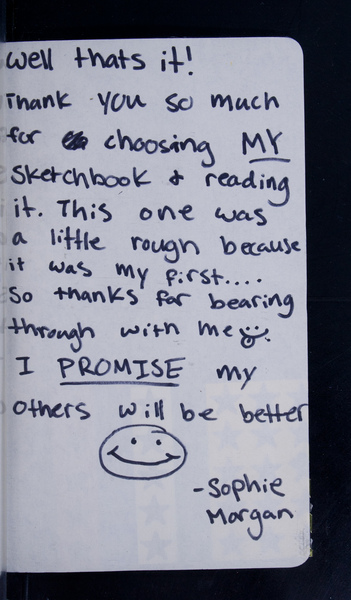 Well thats it!
Thank you so much
for choosing MY
sketchbook & reading
it. This one was
a little rough because
it was my first....
So thanks for bearing
through with me
I PROMISE my
others will be better
-Sophie
Morgan